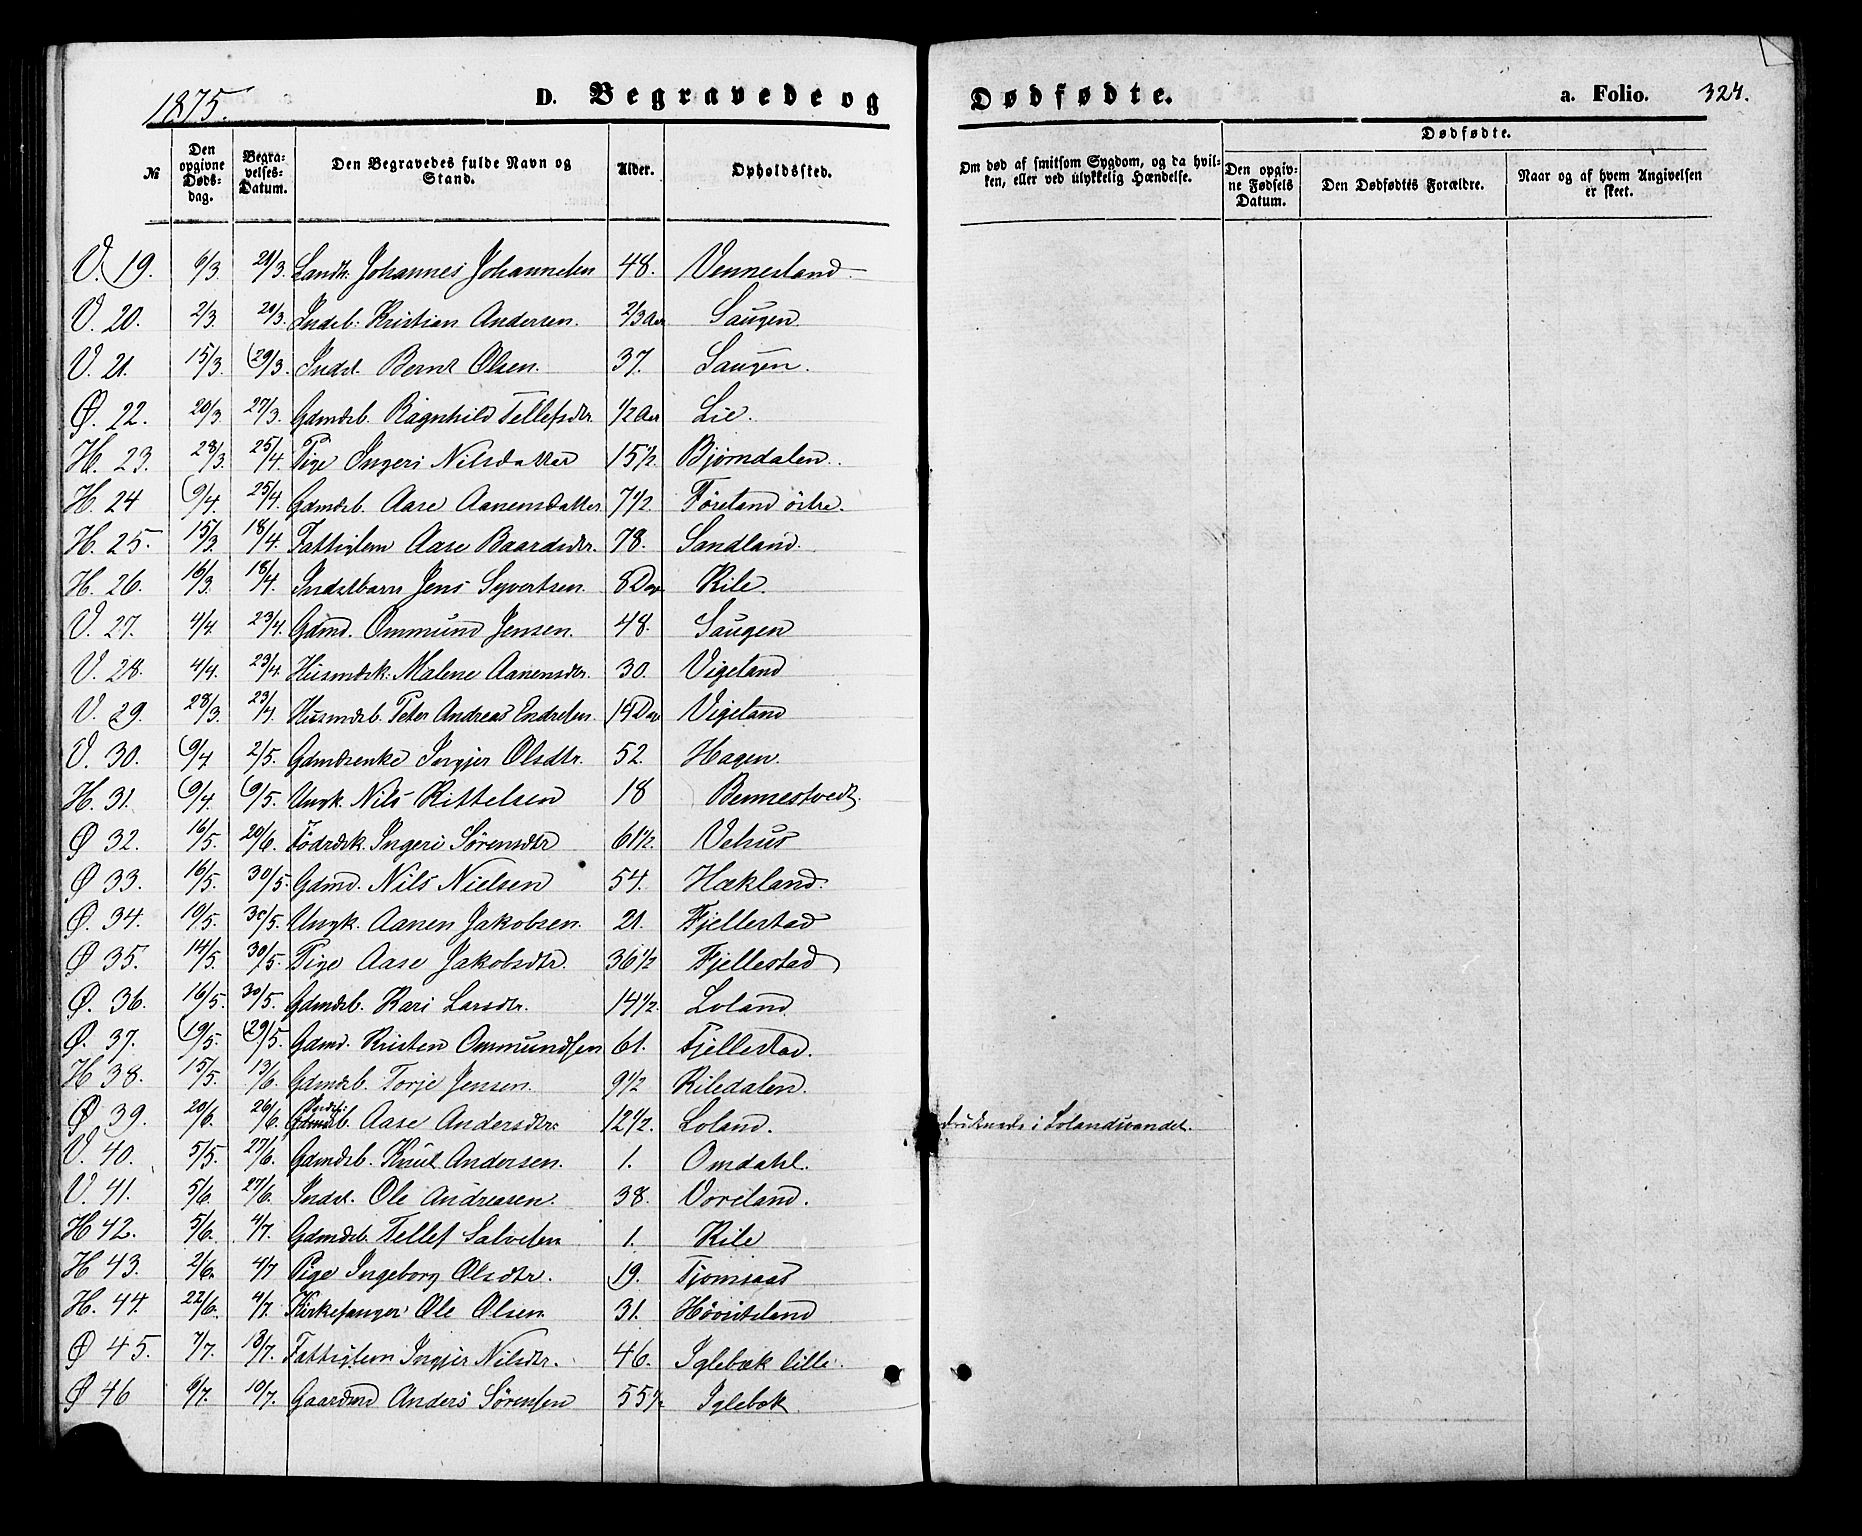 1875.
D. Begravede og
Dødfødte.
a. Folio. 324.
№ Den opgivne Døds-dag. Begra-velses-Datum. Den Begravedes fulde Navn og Stand. Alder. Opholdssted.
Om død af smitsom Sygdom, og da hvil-ken, eller ved ulykkelig Hændelse. Dødfødte. Den opgiv-ne Fødsels Datum. Den Dødfødtes Forældre. Naar og af hvem Angivelsen er skeet.
V. 19. 6/3. Johannes Johannesen 48. Vennesland
V. 20. 2/3. Indsb. Kristian Andersen. 2/3 Aar Saugen
V. 21. 15/3. 29/3. Indst. Bernt Olsen. 37. Saugen.
Ø. 22. 20/3. 27/3. Gdmdsb. Ragnhild Tellefsdtr. 1/2 Aar Lie.
H. 23. 28/3. 25/4. Pige Ingeri Nilsdatter 15 1/2 Bjørndalen.
H. 24 9/4. 25/4. Gdmdsb. Aase Aanensdatter 7 1/2. Føreland östre.
H. 25. 15/3. 18/4. Fattiglem Aase Baardsdtr. 78. Sandland.
H. 26. 16/3. 18/4. Indstbarn Jens Syvertsen. 8 Dage Kile.
V. 27. 4/4. 23/4. Gdmd. Ommund Jensen. 48. Saugen
V. 28. 4/4. 23/4. Husmdsk. Malene Aanensdtr. 30. Vigeland
V. 29. 28/3. 23/4. Husmdsb. Peter Andreas Endresen. 14 Dage Vigeland
V. 30. 9/4 2/5. Gdmdsenke Ingjer Olsdtr. 52. Hagen.
H. 31. 9/4. 9/5. Ungk. Nils Kittelsen 18 Bennestvedt.
Ø 32. 16/5. 20/6. Födrdsk. Ingeri Sørensdtr 61 1/2. Vehus
Ø 33. 16/5. 30/5. Gdmd. Nils Nielsen 54. Hækland.
Ø. 34. 10/5. 30/5. Ungk. Aanen Jakobsen. 21. Fjellestad
Ø 35. 14/5. 30/5. Pige Aase Jakobsdtr. 36 1/2 Fjellestad
Ø. 36. 16/5. 30/5. Gdmdsb. Kari Larsdtr. 14 1/2. Loland
Ø. 37. 19/5. 29/5. Gdmd. Kristen Ommundsen 61. Fjellestad.
H 38. 15/5. 13/6. Gdmdsb. Torje Jensen. 9 1/2 Kiledalen.
Ø 39. 20/6 26/6. Aase Andersdtr: 12 1/2. Loland. druknede i Lolandsvandet.
V. 40. 5/5. 27/6. Gdmdsb. Knut Andersen. 1. Omdahl.
V. 41. 5/6 27/6. Indst. Ole Andreasen. 38. Voreland.
H 42. 5/6. 4/7. Gdmdsb. Tellef Salvesen 1. Kile
H 43. 2/6. 4/7 Pige Ingeborg Olsdtr. 19. Tjomsaas
H. 44. 22/6. 4/7. Kirkesanger Ole Olsen. 31. Høvitsland
Ø 45. 7/7. 18/7. Fattiglem Ingjer Nilsdtr. 46. Iglebæk lille.
Ø 46 9/7. 10/7. Gaardmd Anders Sørensen 55 1/2 Iglebæk